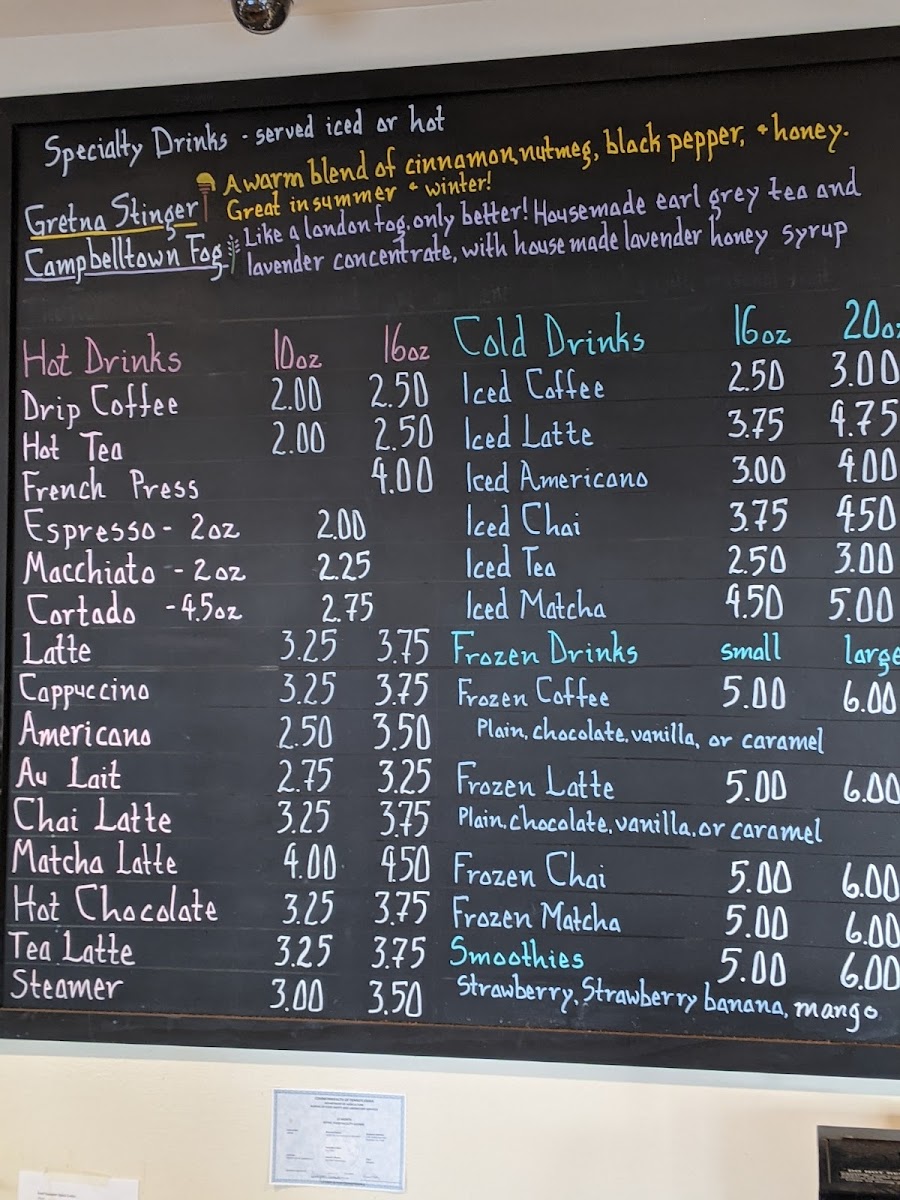 Specialty Drinks - served iced or hot
Gretna Stinger A warm blend of cinnamon, nutmeg, black pepper, + honey.
Great in summer + winter!
Campbelltown Fog Like a london fog, only better! Housemade earl grey tea and
lavender concentrate, with house made lavender honey syrup
Hot Drinks 10oz 16oz
Drip Coffee 2.00 2.50
Hot Tea 2.00 2.50
French Press 4.00
Espresso - 2oz 2.00
Macchiato - 2oz 2.25
Cortado - 4.5oz 2.75
Latte 3.25 3.75
Cappuccino 3.25 3.75
Americano 2.50 3.50
Au Lait 2.75 3.25
Chai Latte 3.25 3.75
Matcha Latte 4.00 4.50
Hot Chocolate 3.25 3.75
Tea Latte 3.25 3.75
Steamer 3.00 3.50
Cold Drinks 16oz 20oz
Iced Coffee 2.50 3.00
Iced Latte 3.75 4.75
Iced Americano 3.00 4.00
Iced Chai 3.75 4.50
Iced Tea 2.50 3.00
Iced Matcha 4.50 5.00
Frozen Drinks small large
Frozen Coffee 5.00 6.00
Plain, chocolate, vanilla, or caramel
Frozen Latte 5.00 6.00
Plain, chocolate, vanilla, or caramel
Frozen Chai 5.00 6.00
Frozen Matcha 5.00 6.00
Smoothies 5.00 6.00
Strawberry, Strawberry banana, mango